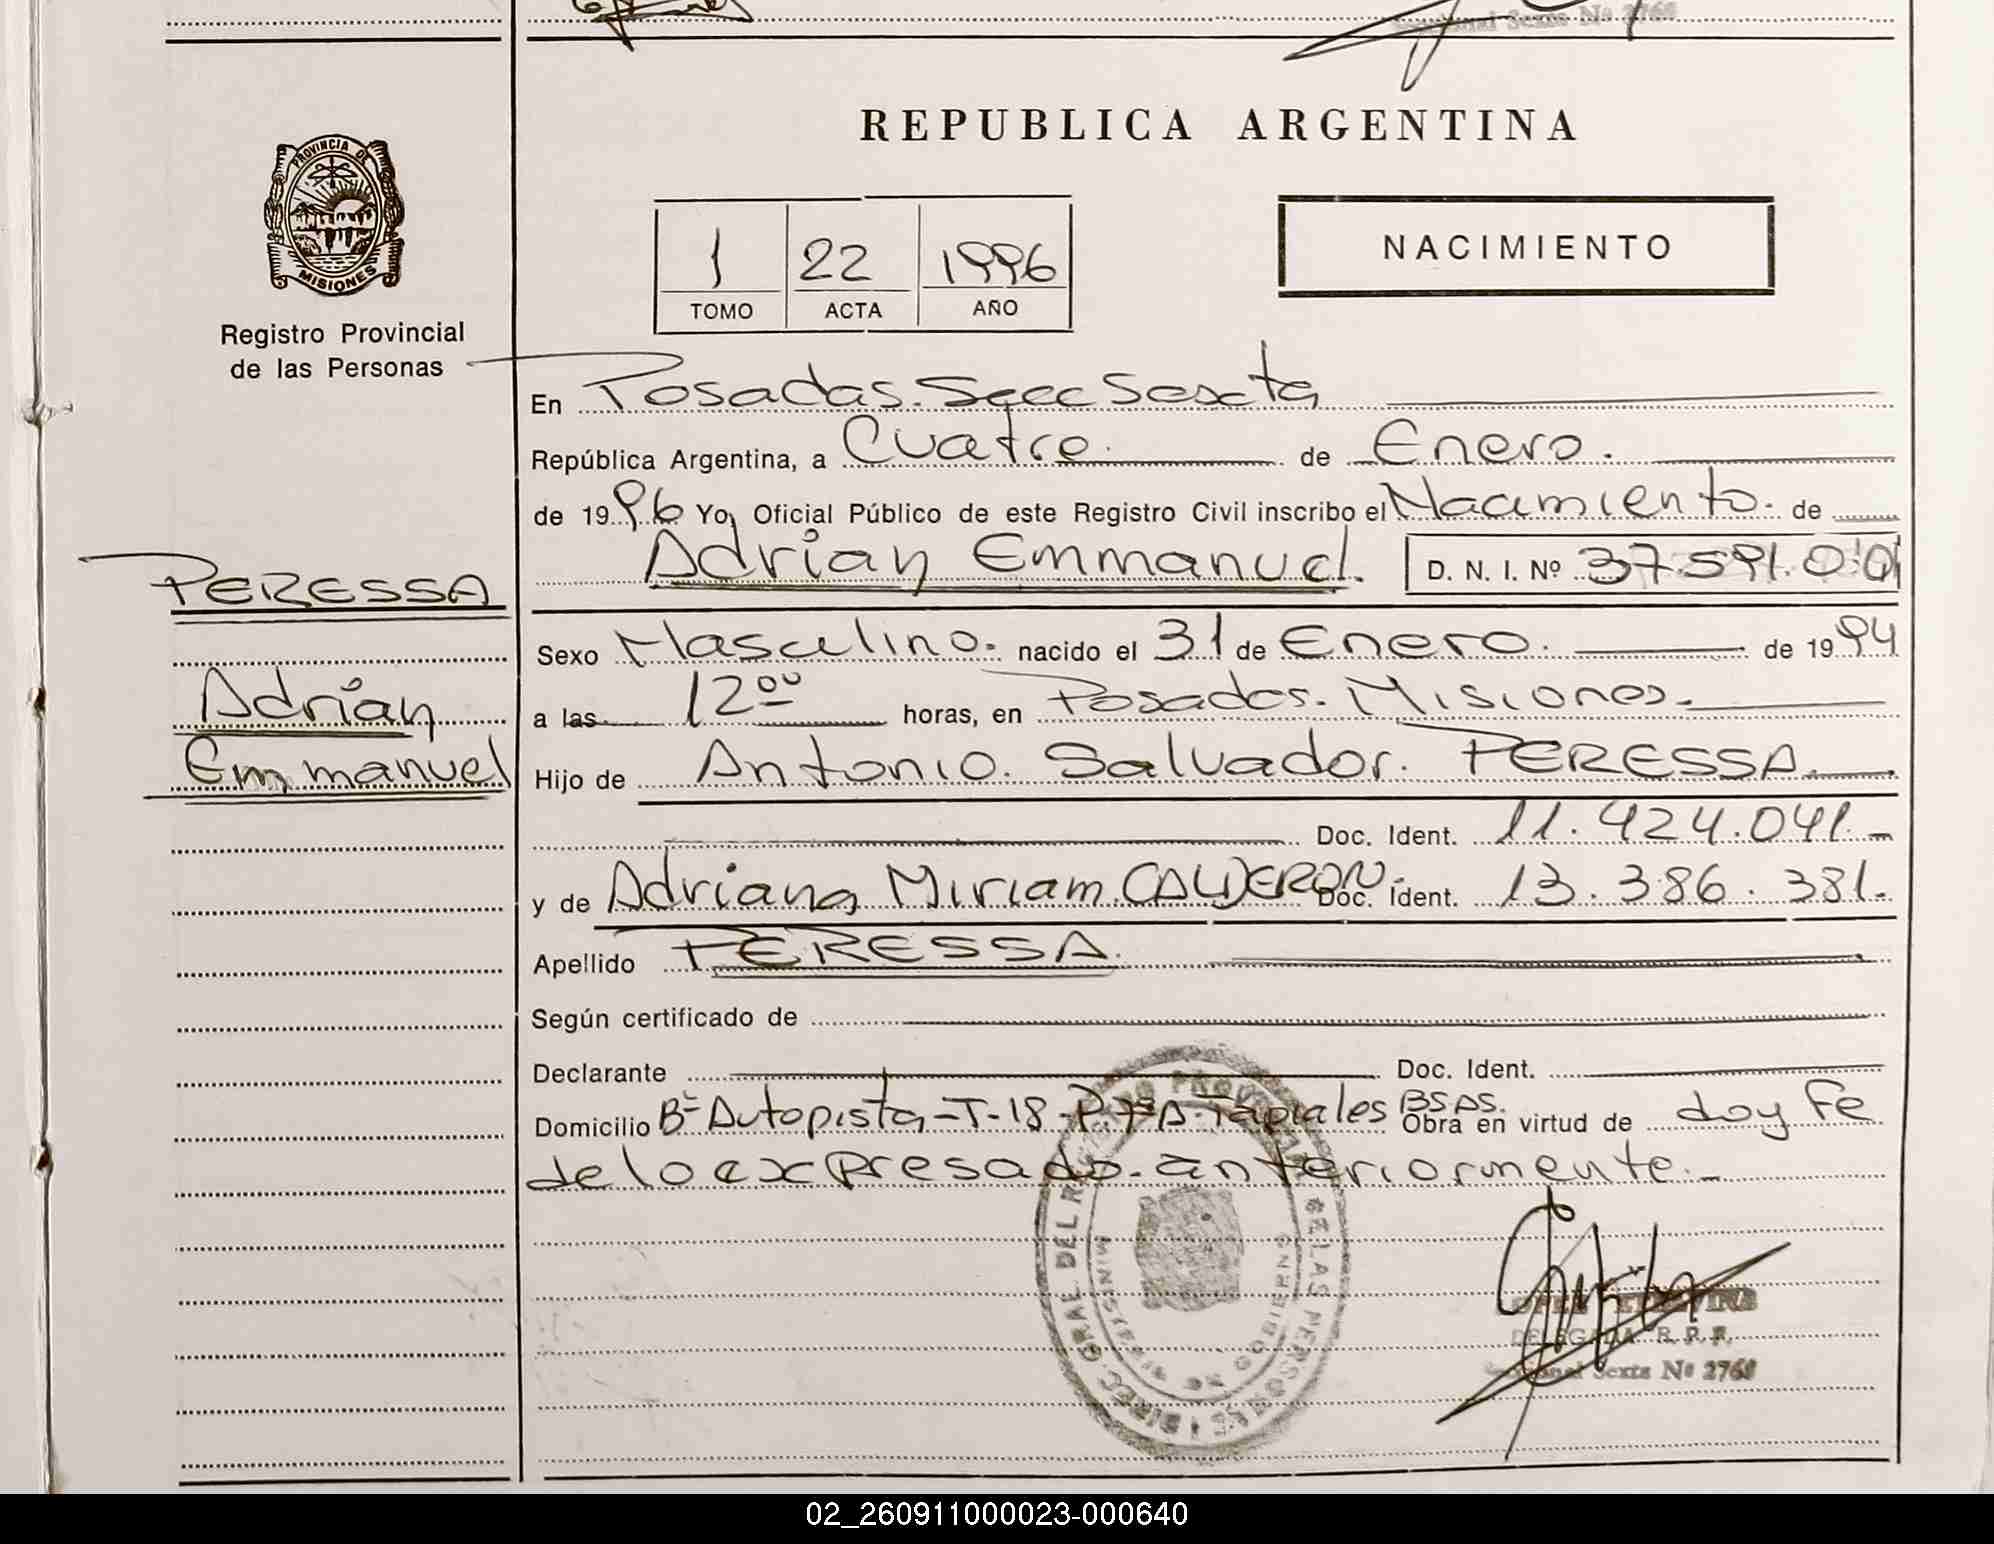 Seccional Sexta Nº 2760
REPUBLICA ARGENTINA
PROVINCIA DE
MISIONES
Registro Provincial
de las Personas
1 22 1996
TOMO ACTA AÑO
NACIMIENTO
En Posadas. Secc Sexta
República Argentina, a Cuatro. de Enero.
de 1996 Yo, Oficial Público de este Registro Civil inscribo el Nacimiento. de
Adrian Emmanuel. D. N. I. Nº 37.591.001
PERESSA
Adrían
Emmanuel
Sexo Masculino. nacido el 31 de Enero. de 1994
a las 12 00 horas, en Posadas. Misiones.
Hijo de Antonio. Salvador. PERESSA.
Doc. Ident. 11.424.041.-
y de Adriana Miriam. CALDERON.- Doc. Ident. 13.386.381.
Apellido PERESSA.
Según certificado de
Declarante Doc. Ident.
Domicilio Bº Autopista-T-18-P.7ºA-Tapiales BSAS. Obra en virtud de doy Fe
de lo expresado. anteriormente.-
DIREC. GRAL. DEL REGISTRO PROVINCIAL DE LAS PERSONAS
MINISTERIO DE GOBIERNO
DELEGADA R. P. P.
Seccional Sexta Nº 2760
02_260911000023-000640